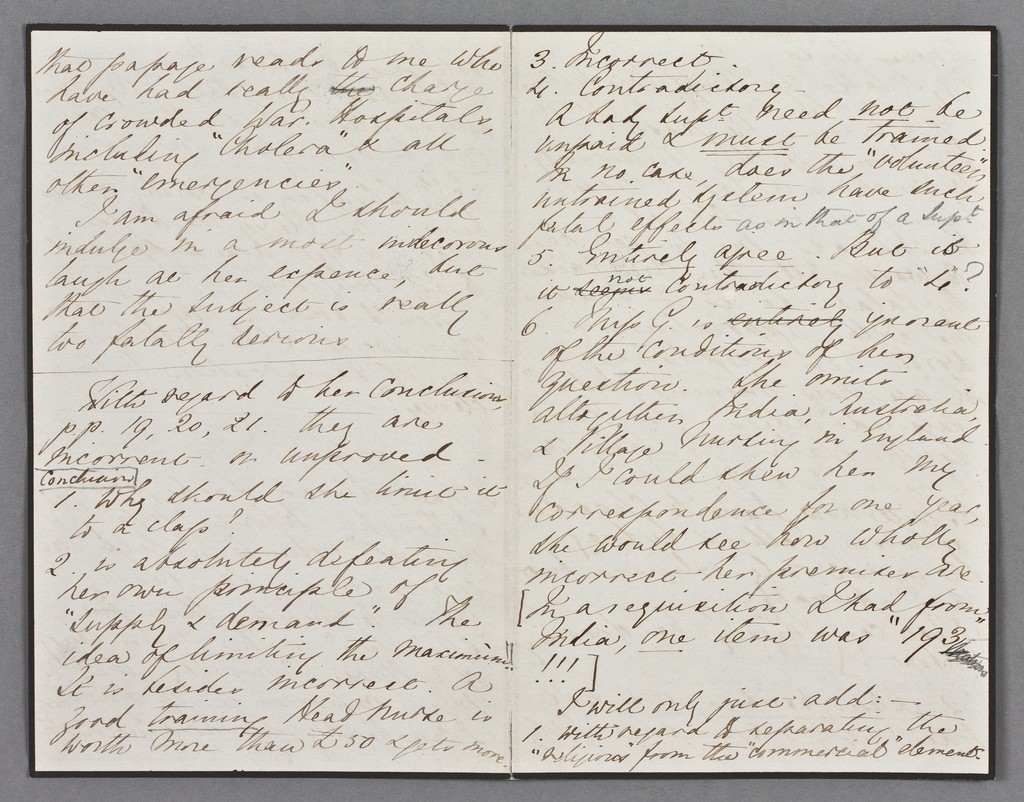 that passage reads to me who
have had really the charge
of crowded War-Hospitals,
including "Cholera" & all
other "emergencies".
I am afraid I should
indulge in a most indecorous
laugh at her expence, but
that the subject is really
too fatally serious.
With regard to her Conclusions,
pp. 19, 20, 21. they are
incorrect or unproved -
Conclusions
1. Why should she limit it
to a class?
2. is absolutely defeating
her own principle of
"supply & demand". The
idea of limiting the maximum!!
It is besides incorrect. A
good training Head Nurse is
worth more than £50 & gets more.
3. Incorrect.
4. Contradictory -
A Lady Supt. need not be
unpaid & must be trained.
In no case, does the "volunteer"
untrained system have such
fatal effects as in that of a Supt
5. Entirely agree. But is
it seems not contradictory to "4"?
6. Miss G. is entirely ignorant
of the conditions of her
question. She omits
altogether India, Australia,
& Village Nursing in England.
If I could shew her my
correspondence for one year,
she would see how wholly
incorrect her premises are.
[In a requisition I had from
India, one item was "193
!!!]
I will only just add: -
1. with regard to separating the
"religious" from the "commercial" element.